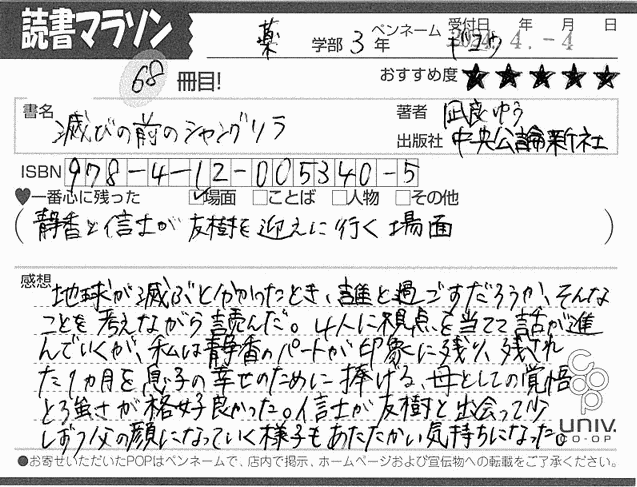 読書マラソン
薬 学部 3 年 ペンネーム ギユウ 受付日 年 月 日
4.-4
68 冊目!
おすすめ度 ★★★★★
書名 滅びの前のシャングリラ
著者 凪良ゆう
出版社 中央公論新社
ISBN 978-4-12-005340-5
♥一番心に残った ☑場面 □ことば □人物 □その他
(静香と信士が友樹を迎えに行く場面)
感想
地球が滅ぶと分かったとき、誰と過ごすだろうか、そんな
ことを考えながら読んだ。4人に視点を当てて話が進
んでいくが、私は静香のパートが印象に残り、残され
た1ヵ月を息子の幸せのために捧げる、母としての覚悟
と強さが格好良かった。信士が友樹と出会って少
しずつ父の顔になっていく様子もあたたかい気持ちになった。
co-op
UNIV.
CO-OP
●お寄せいただいたPOPはペンネームで、店内で掲示、ホームページおよび宣伝物への転載をご了承ください。